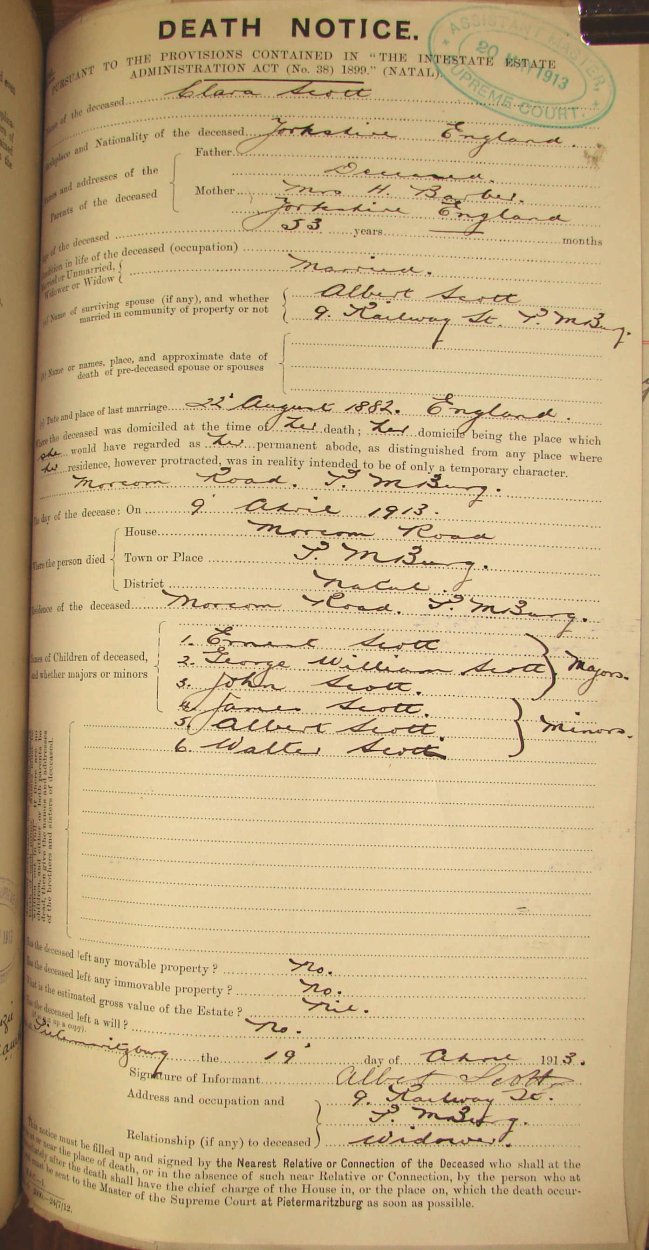 DEATH NOTICE.
ASSISTANT MASTER,
20 MAY 1913
SUPREME COURT.
PURSUANT TO THE PROVISIONS CONTAINED IN "THE INTESTATE ESTATE
ADMINISTRATION ACT (No. 38) 1899." (NATAL)
Name of the deceased Clara Scott
Birthplace and Nationality of the deceased Yorkshire England.
Names and addresses of the Parents of the deceased
Father
Deceased.
Mother Mrs H. Barber.
Yorkshire England
Age of the deceased 53 years months
Condition in life of the deceased (occupation)
Married or Unmarried, Widower or Widow Married.
(a) Name of surviving spouse (if any), and whether Albert Scott
married in community of property or not 9. Railway St. P. MBurg.
(b) Name or names, place, and approximate date of
death of pre-deceased spouse or spouses
(c) Date and place of last marriage 22d August 1882. England.
Where the deceased was domiciled at the time of her death; her domicile being the place which
she would have regarded as her permanent abode, as distinguished from any place where
her residence, however protracted, was in reality intended to be of only a temporary character.
Morcom Road. P. MBurg.
The day of the decease: On 9' April 1913.
Where the person died
House Morcom Road
Town or Place P. MBurg.
District Natal.
Residence of the deceased Morcom Road. P. MBurg.
Names of Children of deceased,
and whether majors or minors
1. Ernest Scott
2. George William Scott
3. John Scott.
Majors.
4. James Scott.
5. Albert Scott.
6. Walter Scott
Minors.
children, and either or both parents be
dead, then give the names and addresses
of the brothers and sisters of deceased.
Has the deceased left any movable property? No.
Has the deceased left any immovable property? No.
What is the estimated gross value of the Estate? Nil.
Has the deceased left a will? No.
Pietermaritzburg the 19' day of April 1913.
Signature of Informant Albert Scott
Address and occupation and 9. Railway St.
P. MBurg.
Relationship (if any) to deceased Widower.
This notice must be filled up and signed by the Nearest Relative or Connection of the Deceased who shall at the
at or near the place of death, or in the absence of such near Relative or Connection, by the person who at
immediately after the death shall have the chief charge of the House in, or the place on, which the death occur-
must be sent to the Master of the Supreme Court at Pietermaritzburg as soon as possible.
24/7/12.